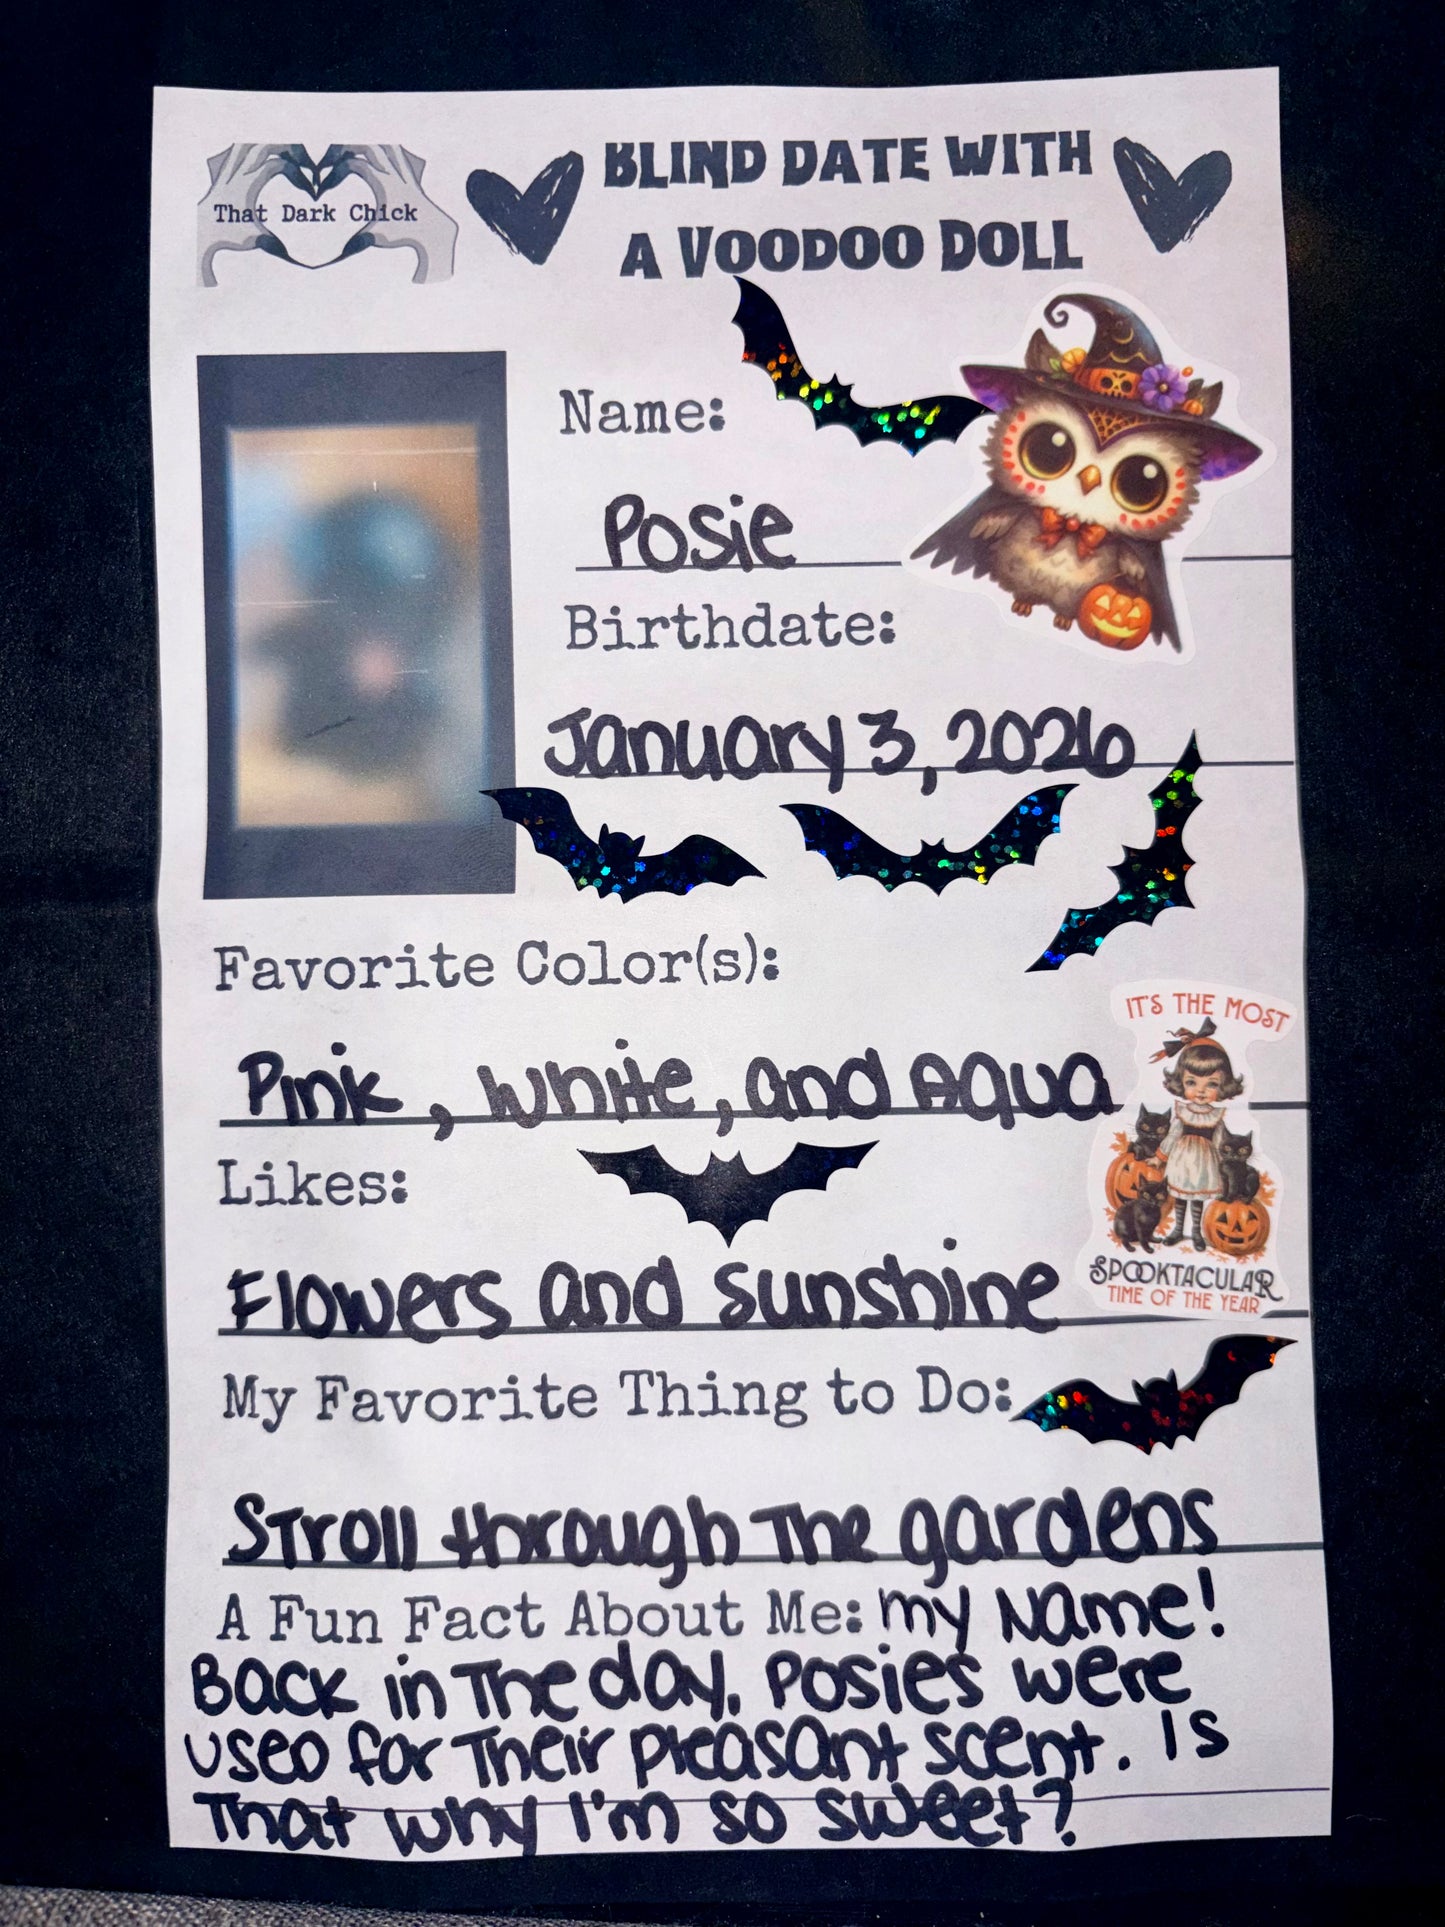 That Dark Chick
BLIND DATE WITH
A VOODOO DOLL
Name:
Posie
Birthdate:
January 3, 2026
Favorite Color(s):
Pink, white, and Aqua
IT'S THE MOST
SPOOKTACULAR
TIME OF THE YEAR
Likes:
Flowers and sunshine
My Favorite Thing to Do:
Stroll through the gardens
A Fun Fact About Me: my Name!
Back in the day, posies were
used for their pleasant scent. Is
that why I'm so sweet?